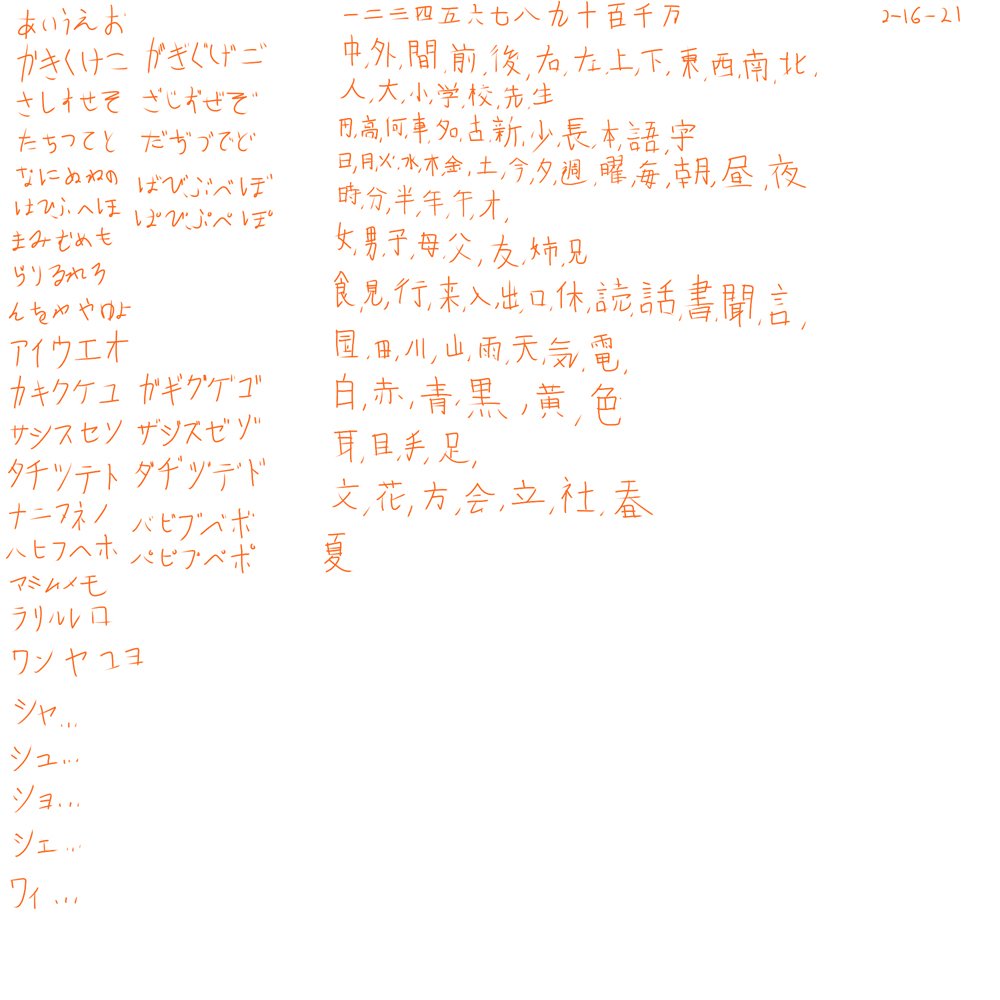 あいうえお
かきくけこ がぎぐげご
さしすせそ ざじずぜぞ
たちつてと だぢづでど
なにぬねの
ばびぶべぼ
はひふへほ
ぱぴぷぺぽ
まみむめも
らりるれろ
んをわやゆよ
アイウエオ
カキクケコ ガギグゲゴ
サシスセソ ザジズゼゾ
タチツテト ダヂヅデド
ナニヌネノ
バビブベボ
ハヒフヘホ
パピプペポ
マミムメモ
ラリルレロ
ワンヤユヨ
シャ...
シュ...
ショ...
シェ...
ウィ...
一二三四五六七八九十百千万
2-16-21
中,外,間,前,後,右,左,上,下,東,西,南,北,
人,大,小,学,校,先,生
円,高,何,車,名,古,新,少,長,本,語,字
日,月,火,水,木,金,土,今,夕,週,曜,毎,朝,昼,夜
時,分,半,年,午,才,
女,男,子,母,父,友,姉,兄
食,見,行,来,入,出,口,休,読,話,書,聞,言,
国,田,川,山,雨,天,気,電,
白,赤,青,黒,黄,色
耳,目,手,足,
文,花,方,会,立,社,春
夏